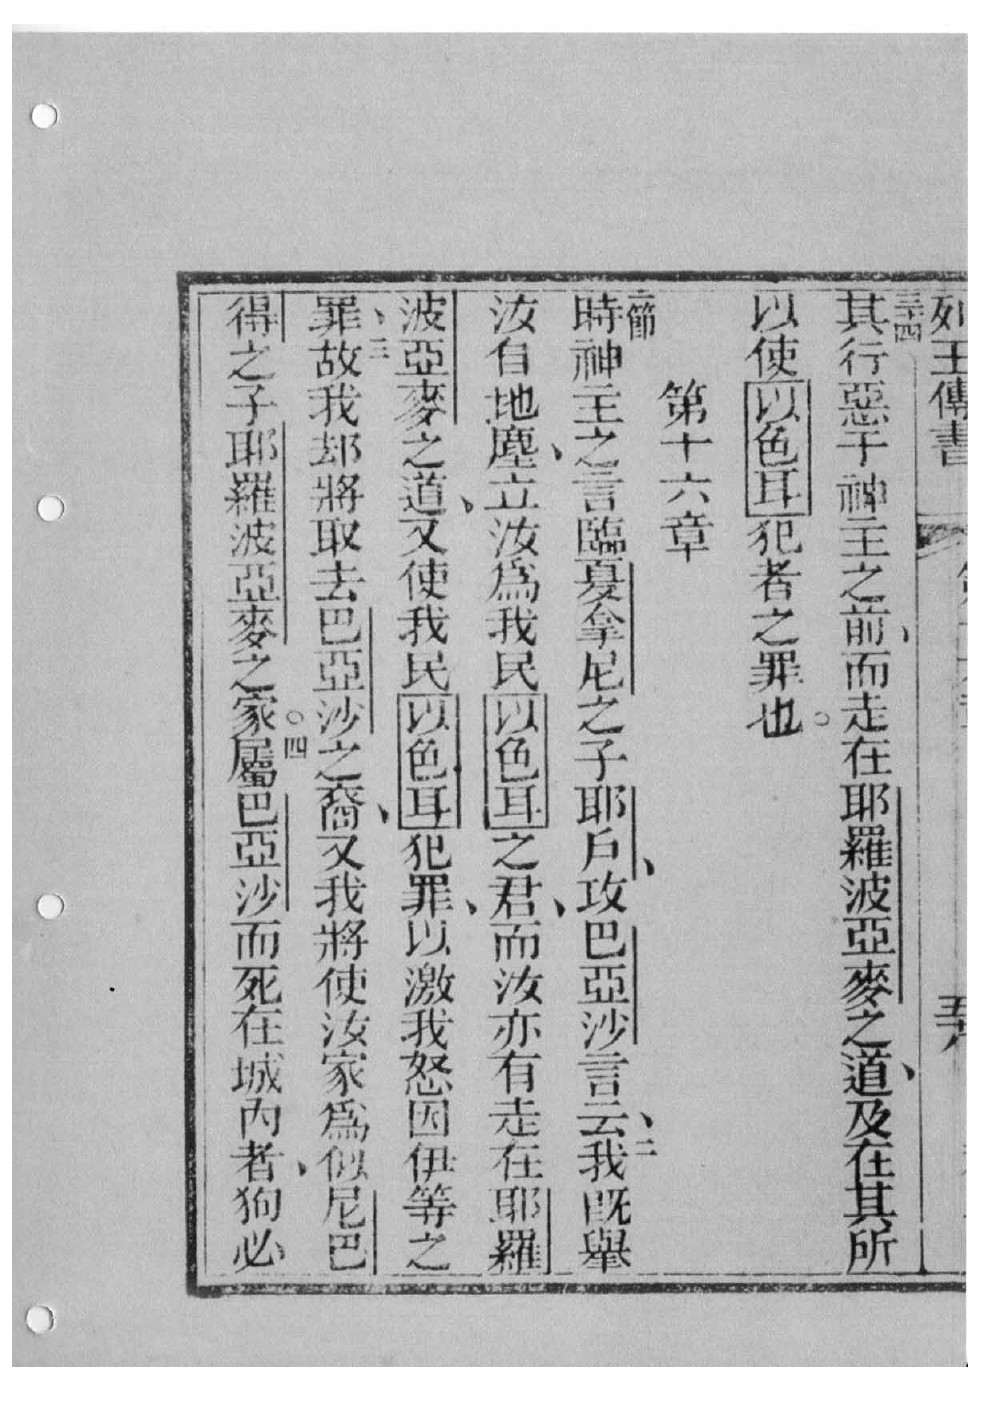 列王傳書
三十四
其行惡于神主之前、而走在耶羅波亞麥之道、及在其所
以使以色耳犯者之罪也。
第十六章
一節
時神主之言臨戛拿尼之子耶戶、攻巴亞沙言云、二我既舉
汝自地塵、立汝爲我民以色耳之君、而汝亦有走在耶羅
波亞麥之道、又使我民以色耳犯罪、以激我怒因伊等之
罪、三故我却將取去巴亞沙之裔、又我將使汝家爲似尼巴
得之子耶羅波亞麥之家。四屬巴亞沙而死在城內者、狗必